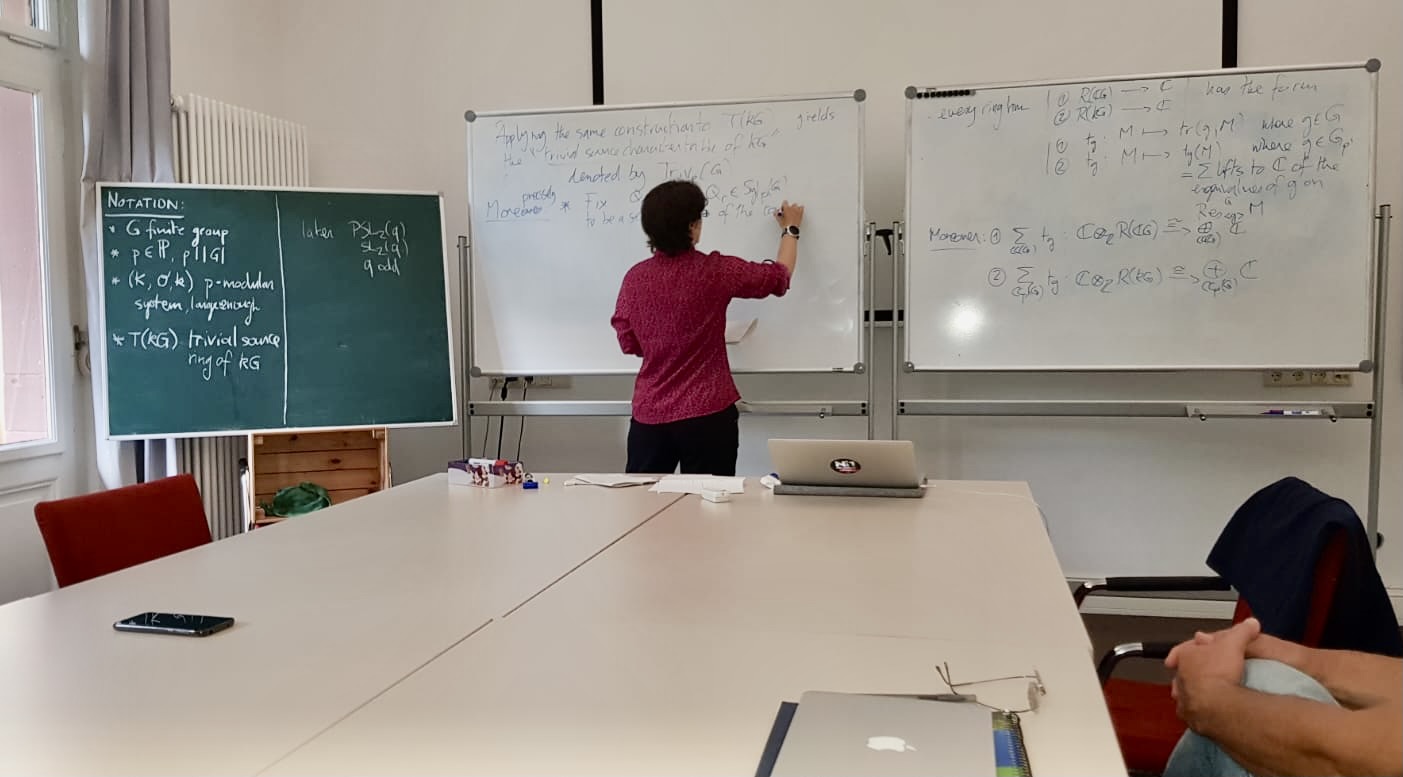 NOTATION:
* G finite group
* p∈ℙ, p | |G|
* (K, O, k) p-modular
system, large enough
* T(kG) trivial source
ring of kG
later PSL₂(q)
SL₂(q)
q odd
Applying the same construction to T(kG) yields
the "trivial source character table of kG"
denoted by Triv_p(G)
precisely
Moreover * Fix Q Q_r ∈ Syl_p(G)
to be a s of the
every ring hom | ① R(ℂG) → ℂ has the form
② R(kG) → ℂ
① t_g : M ↦ tr(g,M) where g∈G
② t_g : M ↦ t_g(M) where g∈G_p'
= Σ lifts to ℂ of the
eigenvalues of g on
Res^G_<g> M
Moreover: ① Σ t_g : ℂ⊗_ℤ R(ℂG) ≅→ ⊕ ℂ
② Σ t_g : ℂ⊗_ℤ R(kG) ≅→ ⊕ ℂ